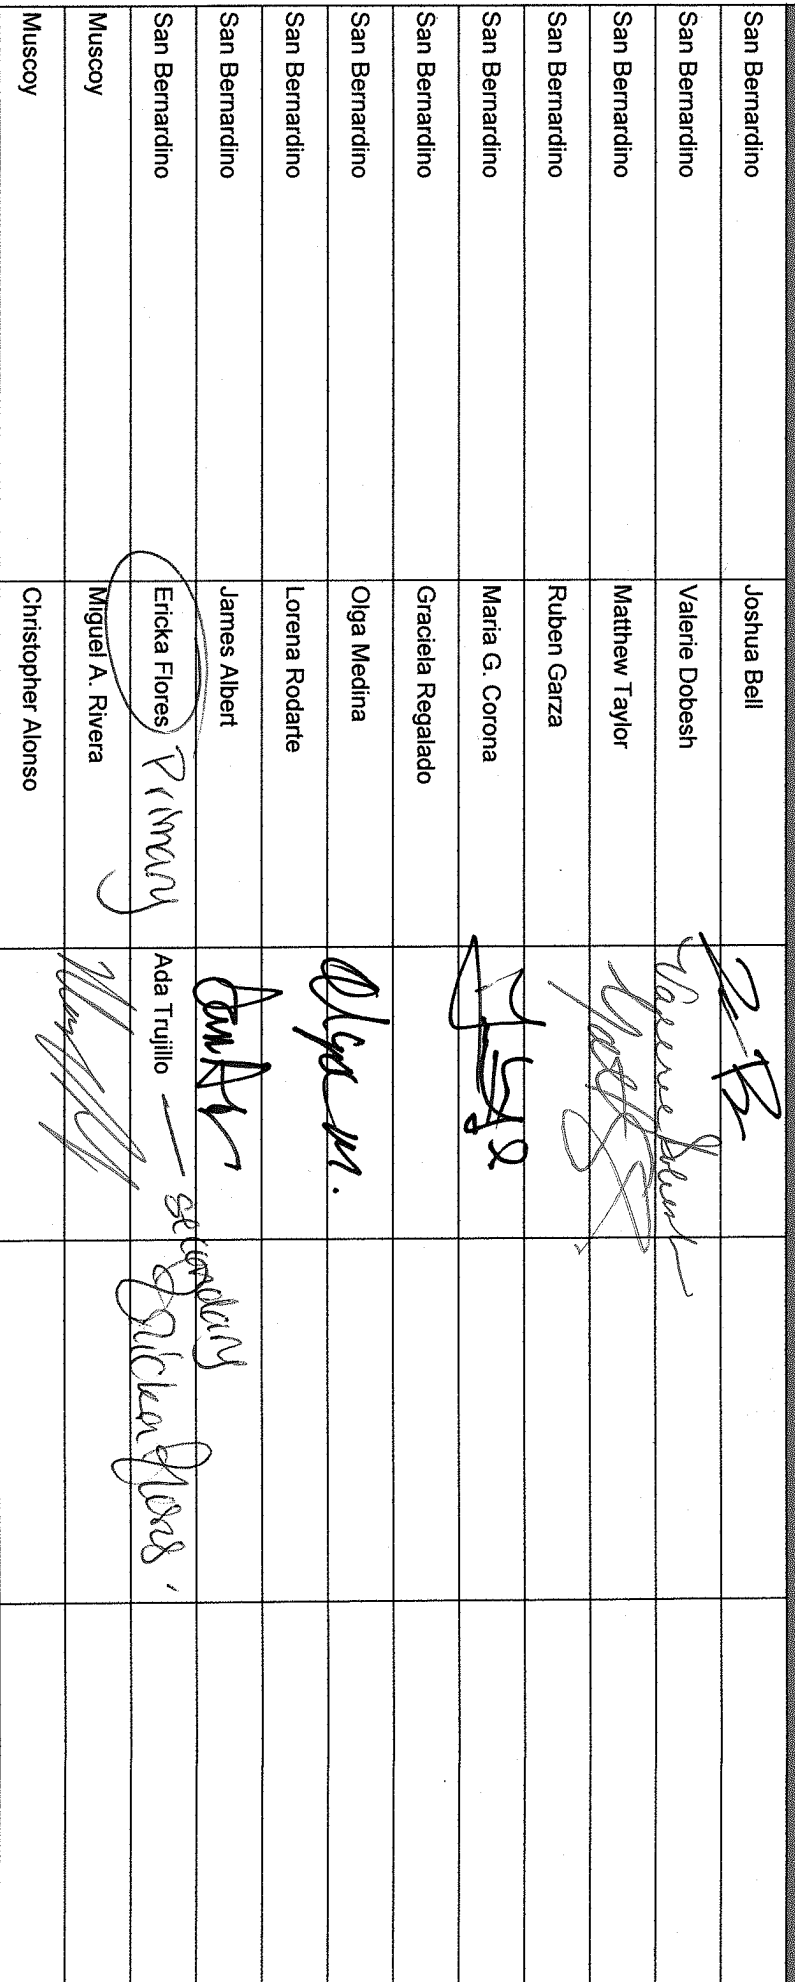 San Bernardino Joshua Bell
San Bernardino Valerie Dobesh Valerie Dobesh
San Bernardino Matthew Taylor
San Bernardino Ruben Garza
San Bernardino Maria G. Corona
San Bernardino Graciela Regalado
San Bernardino Olga Medina Olga M.
San Bernardino Lorena Rodarte
San Bernardino James Albert
San Bernardino Ericka Flores Primary Ada Trujillo — secondary Ericka Flores
Muscoy Miguel A. Rivera
Muscoy Christopher Alonso